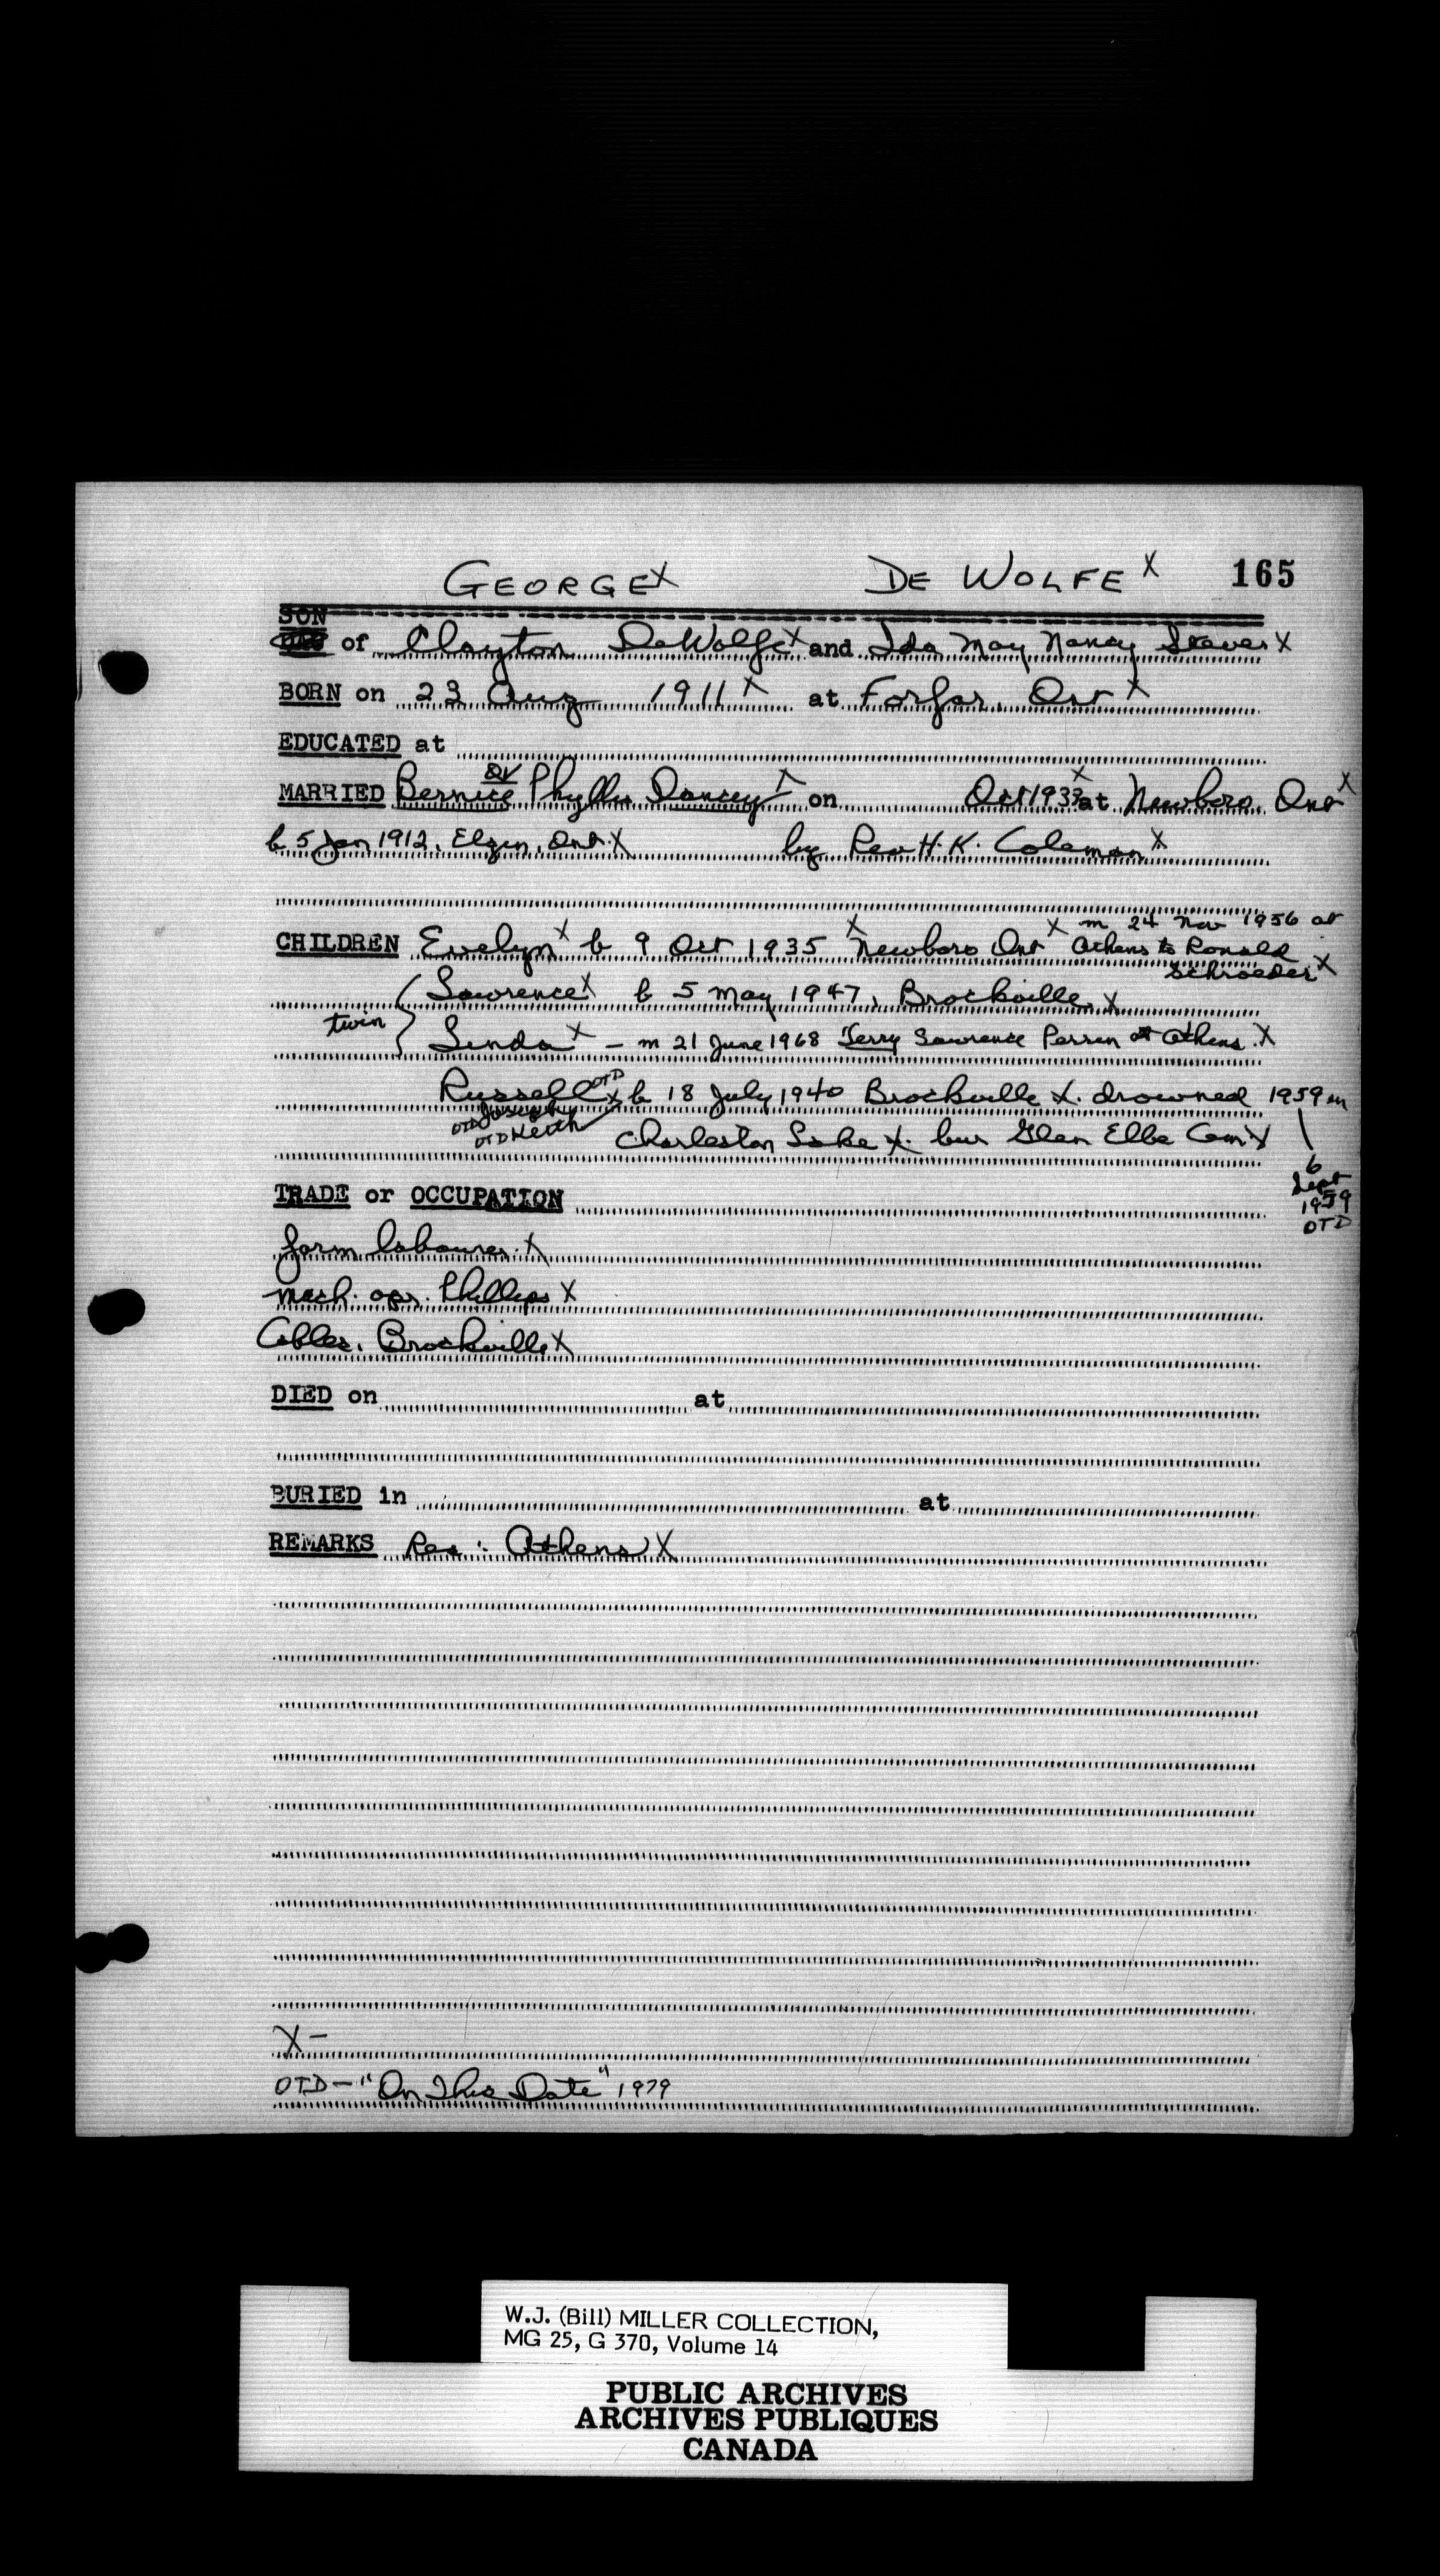 GEORGE X DE WOLFE X 165
SON
of Clayton DeWolfe X and Ida May Nancy X
BORN on 23 Aug 1911 X at Forfar, Ont X
EDUCATED at
MARRIED Bernice Phyllis X on Oct 1933 X at Newboro, Ont X
b 5 Jan 1912, Elgin, Ont. X by Rev H.K. Coleman X
CHILDREN Evelyn X b 9 Oct 1935 X Newboro Ont X m 24 Nov 1956 at
Athens to Ronald
Schroeder X
twin { Lawrence X b 5 May 1947, Brockville, X
Linda X - m 21 June 1968 Terry Lawrence Perrin at Athens. X
Russell OTD X b 18 July 1940 Brockville X. drowned 1959 in
OTD
OTD Keith
Charleston Lake X. bur Glen Elbe Cem X
6
Sept
1959
OTD
TRADE or OCCUPATION
farm labourer. X
mach. opr. Phillips X
Cables, Brockville X
DIED on at
BURIED in at
REMARKS Res: Athens X
X -
OTD - "On This Date" 1979
W.J. (Bill) MILLER COLLECTION,
MG 25, G 370, Volume 14
PUBLIC ARCHIVES
ARCHIVES PUBLIQUES
CANADA